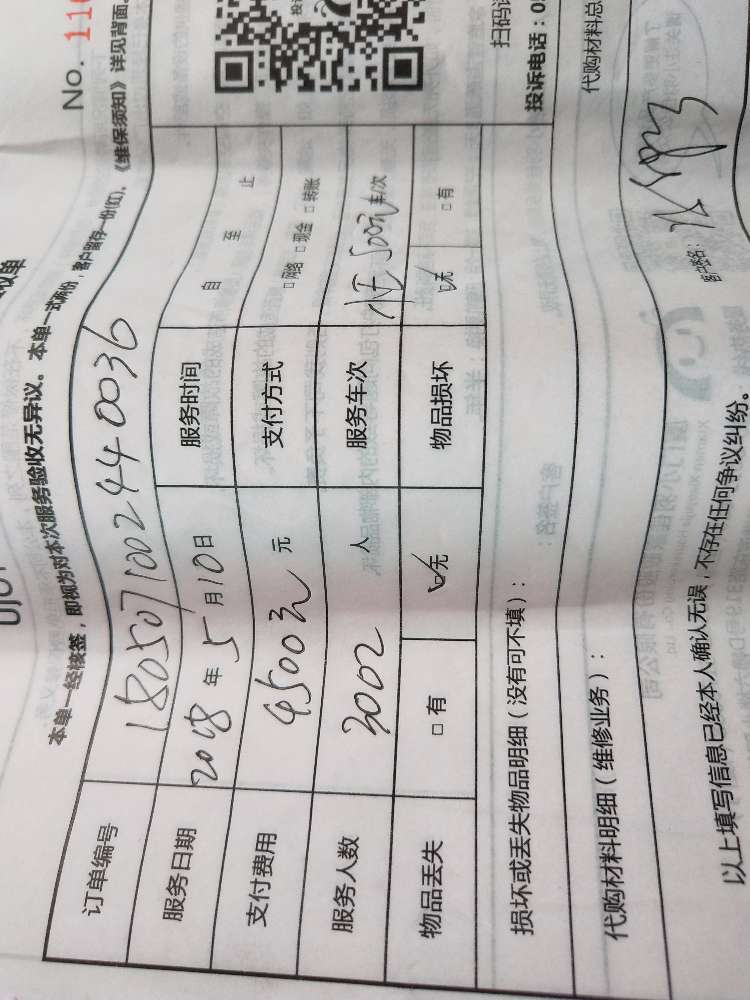 No. 116
收单
本单一经核签，即视为对本次服务验收无异议。本单一式两份，客户留存一份(红)，《维保须知》详见背面。
订单编号 180507100244 0036
服务日期 2018 年 5 月 10 日 服务时间 自 至 止
支付费用 4500元 元 支付方式 □网络 □现金 □转账
服务人数 3002 人 服务车次 500元 车/次
物品丢失 □有 ☑无 物品损坏 ☑无 □有
损坏或丢失物品明细（没有可不填）：
扫码
投诉电话：0
代购材料明细（维修业务）：
代购材料总
以上填写信息已经本人确认无误，不存在任何争议纠纷。
客户签名：